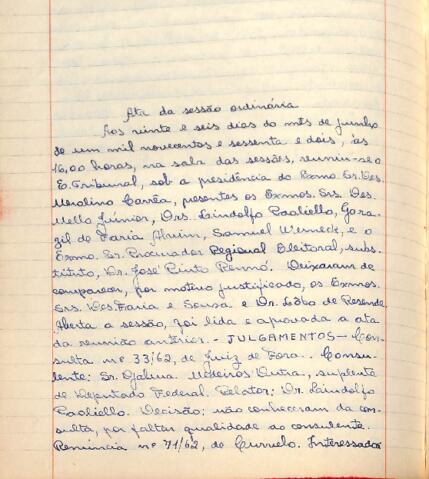 Ata da sessão ordinária
Aos vinte e seis dias do mês de junho
de um mil novecentos e sessenta e dois, às
16,00 horas, na sala das sessões, reuniu-se o
E. Tribunal, sob a presidência do Exmo. Sr. Des.
Merolino Corrêa, presentes os Exmos. Srs. Des.
Mello Júnior, Drs. Lindolfo Paoliello, Gora-
zil de Faria Alvim, Samuel Werneck, e o
Exmo. Sr. Procurador Regional Eleitoral, subs-
tituto, Dr. José Pinto Rennó. Deixaram de
comparecer, por motivo justificado, os Exmos.
Srs. Des. Faria e Sousa e Dr. Lôbo de Resende.
Aberta a sessão, foi lida e aprovada a ata
da reunião anterior. - JULGAMENTOS - Con-
sulta nº 33/62, de Juiz de Fora. Consu-
lente: Sr. Medeiros Dutra, suplente
de Deputado Federal. Relator: Dr. Lindolfo
Paoliello. Decisão: não conheceram da con-
sulta, por faltar qualidade ao consulente.
Renúncia nº 71/62, de Curvelo. Interessado: